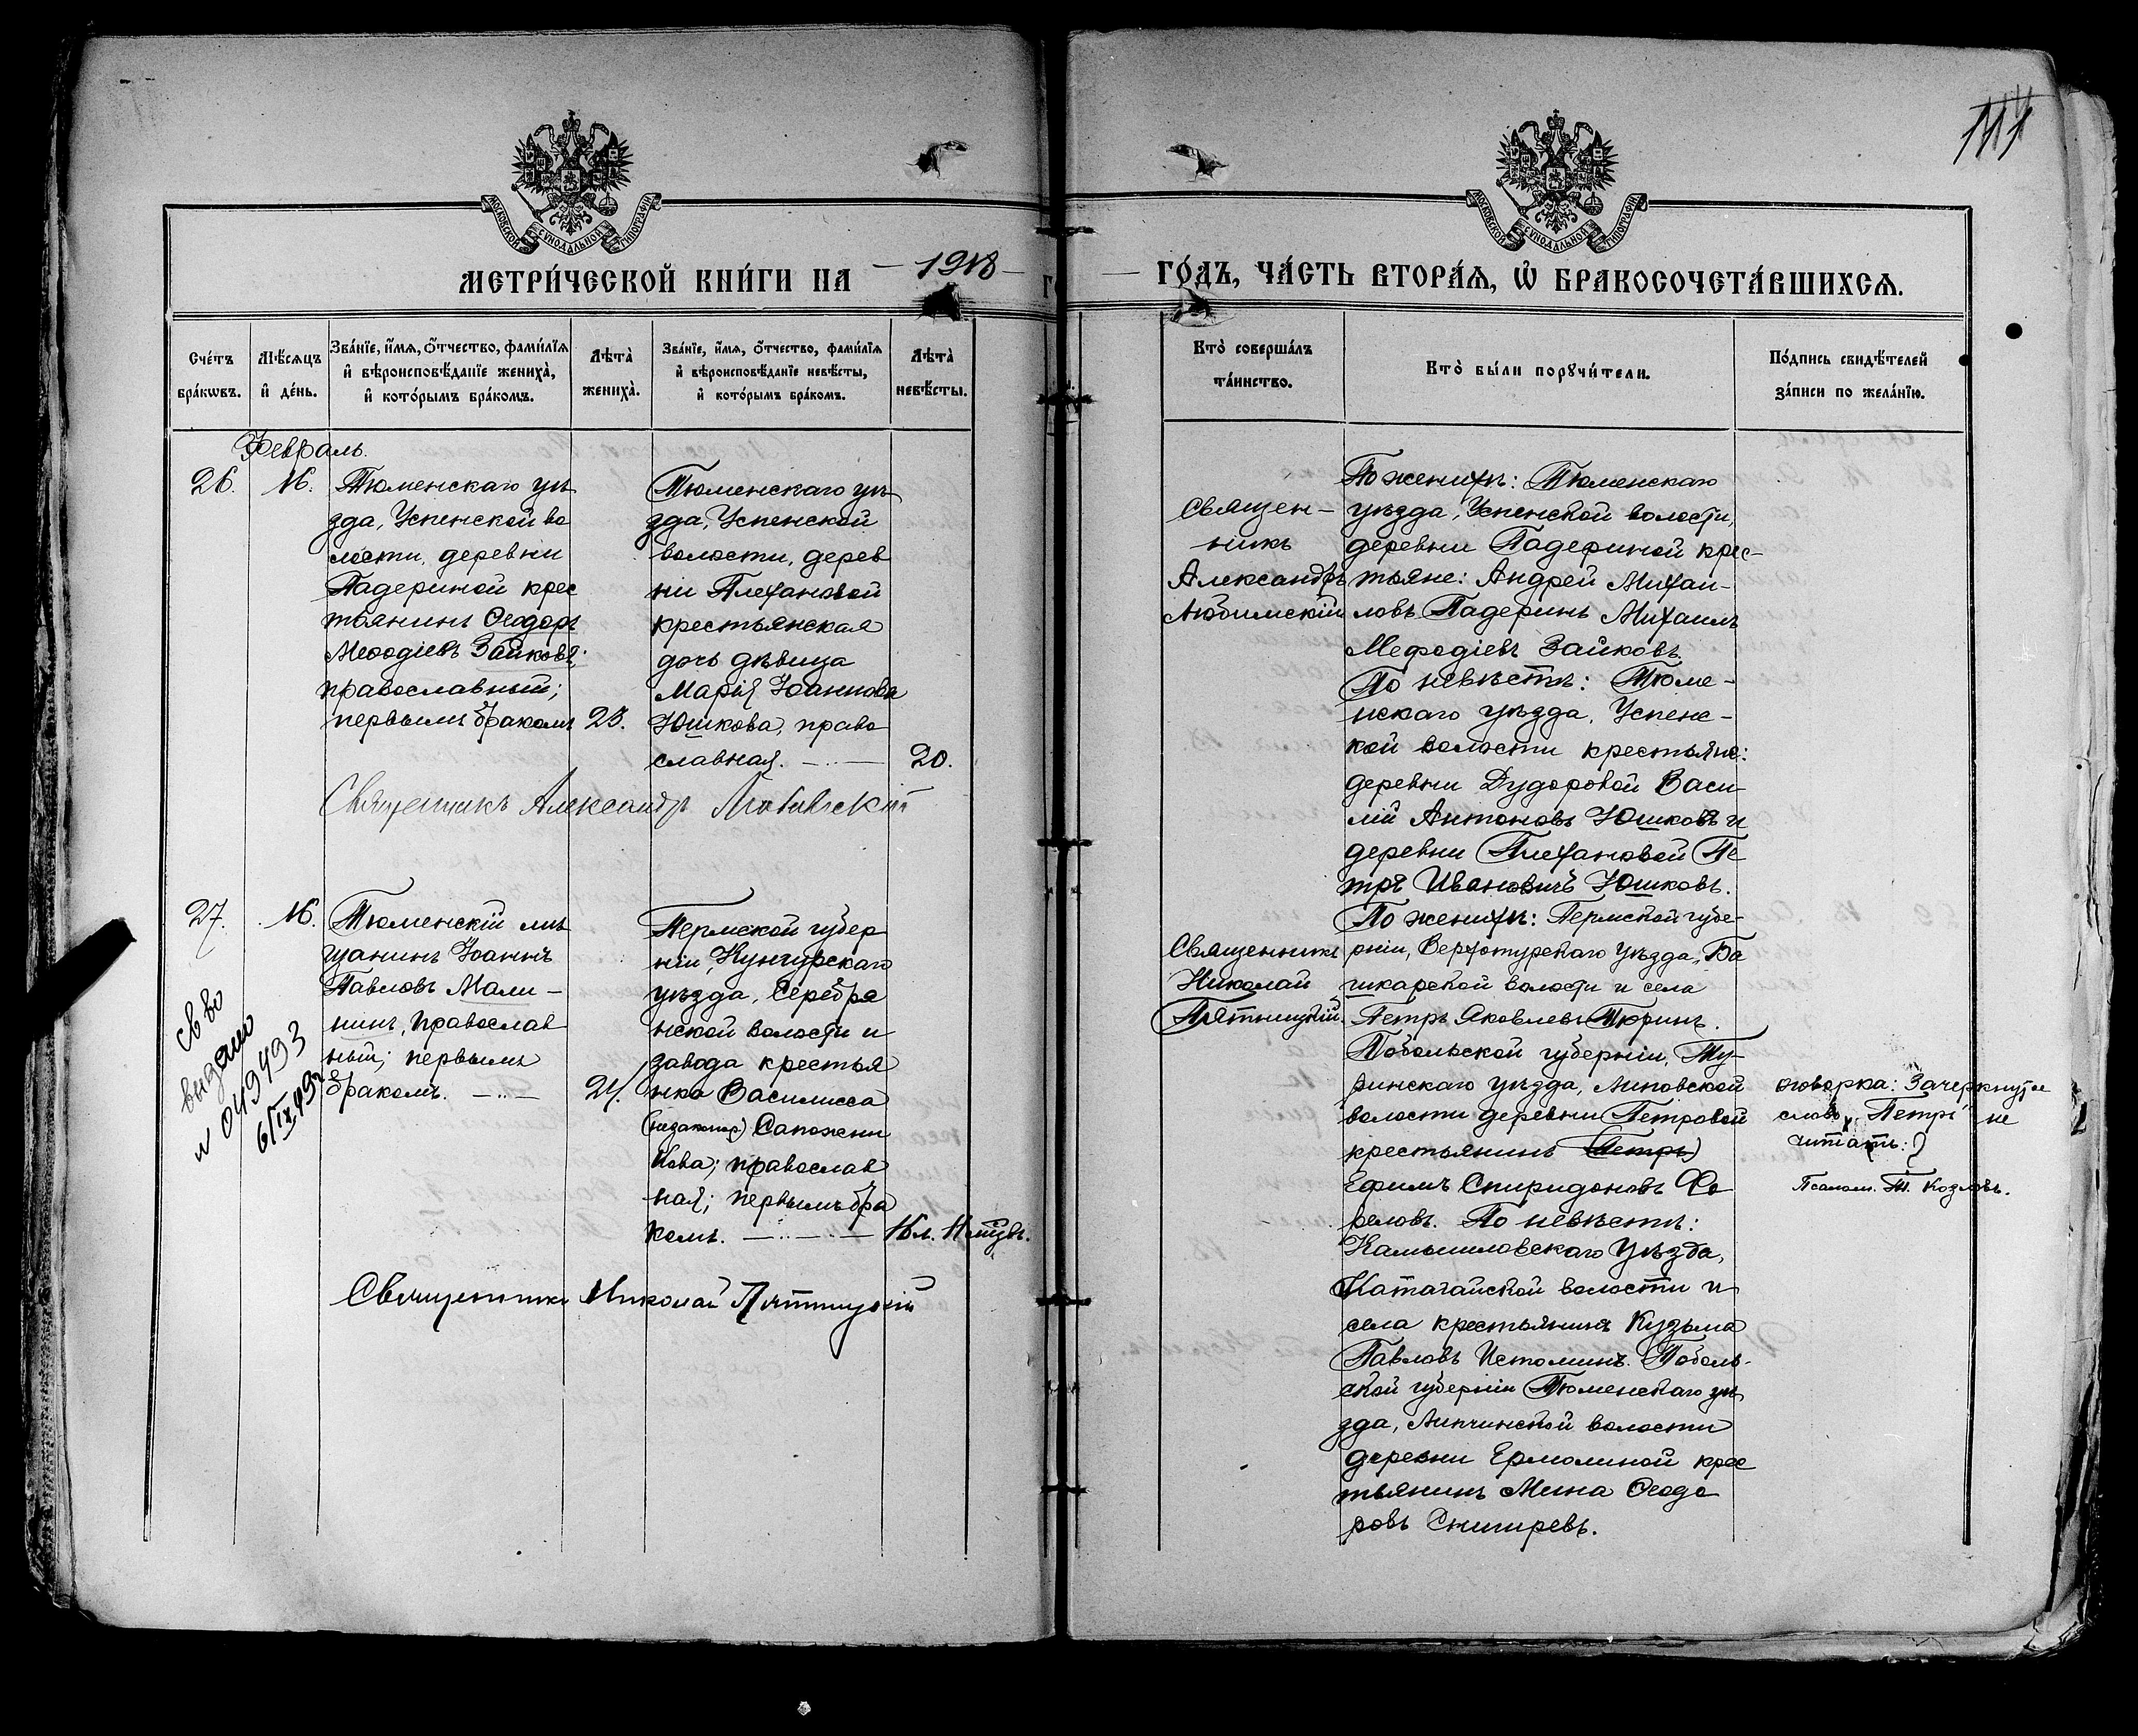 111
МОСКОВСКОЙ СѴНОДАЛЬНОЙ ТИПОГРАФІИ
МОСКОВСКОЙ СѴНОДАЛЬНОЙ ТИПОГРАФІИ
МЕТРИ́ЧЕСКОЙ КНИ́ГИ НА — 1918 —
ГО́ДЪ, ЧА́СТЬ ВТОРА́Ѧ, Ѽ БРАКОСОЧЕТА́ВШИХСѦ.
Сче́тъ
бра́кѡвъ.
Мѣ́сѧцъ
и҆ де́нь.
Зва́нїе, и҆́мѧ, ѻ҆́тчество, фами́лїѧ
и҆ вѣроисповѣ́данїе жениха̀,
и҆ кото́рымъ бра́комъ.
Лѣта̀
жениха̀.
Зва́нїе, и҆́мѧ, ѻ҆́тчество, фами́лїѧ
и҆ вѣроисповѣ́данїе невѣ́сты,
и҆ кото́рымъ бра́комъ.
Лѣта̀
невѣ́сты.
Кто̀ соверша́лъ
та́инство.
Кто̀ бы́ли порꙋчи́тели.
По́дпись свидѣ́телей
за́писи по жела́нїю.
Февраль.
26.
16.
Тюменскаго уѣ
зда, Успенской во
лости, деревни
Падериной крес
тьянинъ Ѳеодоръ
Меѳодіевъ Зайковъ,
православный;
первымъ бракомъ
23.
Тюменскаго уѣ
зда, Успенской
волости, дерев
ни Плехановой
крестьянская
дочь дѣвица
Марія Іоаннова
Юшкова, право
славная. — .. —
20.
Священникъ Александръ Любимскій
Священ-
никъ
Александръ
Любимскій
По женихѣ: Тюменскаго
уѣзда, Успенской волости,
деревни Падериной крес-
тьяне: Андрей Михаи-
ловъ Падеринъ Михаилъ
Мефодіевъ Зайковъ
По невѣстѣ: Тюме-
нскаго уѣзда, Успенс-
кой волости крестьяне:
деревни Дудоровой Васи-
лій Антоновъ Юшковъ и
деревни Плехановой Пе
тръ Ивановичъ Юшковъ.
27.
16.
св во
выдано
и 049493
6/IX 49г
Тюменскій мѣ
щанинъ Іоаннъ
Павловъ Мали-
нинъ, православ
ный; первымъ
бракомъ. — .. —
24.
Пермской губер
ніи, Кунгурскаго
уѣзда, Серебря
нской волости и
завода крестья
нка Василисса
(незаконнор) Сапожни
кова; православ
ная; первымъ бра
комъ. — .. — .. —
Священникъ Николай Пятницкій
Священникъ
Николай
Пятницкій.
По женихѣ: Пермской губе-
рніи, Верхотурскаго уѣзда, Ба
шкарской волости и села
Петръ Яковлевъ Тюринъ.
Тобольской губерніи, Ту-
ринскаго уѣзда, Липовской
волости деревни Петровой
крестьянинъ (Петръ)
Ефимъ Спиридоновъ Фо
реловъ. По невѣстѣ:
Камышловскаго уѣзда,
Катагайской волости и
села крестьянинъ Кузьма
Павловъ Истоминъ. Тоболь-
ской губерніи Тюменскаго уѣ
зда, Липчинской волости
деревни Ермолиной крес
тьянинъ Мина Ѳеодо
ровъ Снигиревъ.
оговорка: Зачеркнутое
слово „Петръ“ не
читать:)
Псалом. Т. Козловъ.